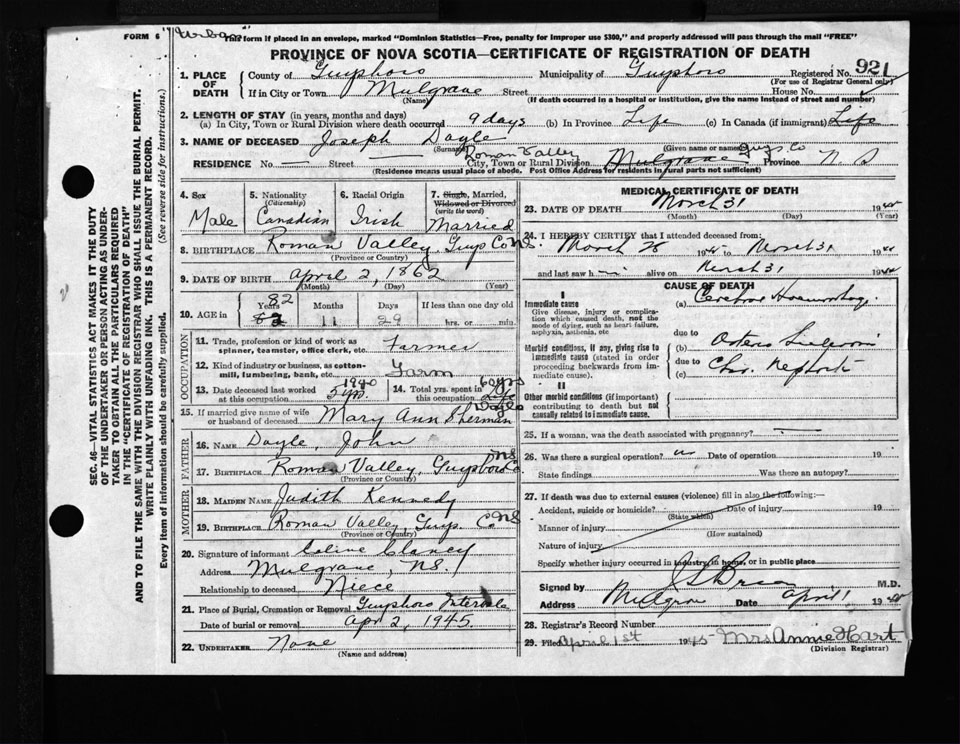 FORM 6 "Urban" This form if placed in an envelope, marked "Dominion Statistics—Free, penalty for improper use $300," and properly addressed will pass through the mail "FREE"
PROVINCE OF NOVA SCOTIA—CERTIFICATE OF REGISTRATION OF DEATH
1. PLACE OF DEATH County of Guysboro Municipality of Guysboro Registered No. 921
(For use of Registrar General only)
If in City or Town Mulgrave Street House No.
(Name) (If death occurred in a hospital or institution, give the name instead of street and number)
2. LENGTH OF STAY (in years, months and days)
(a) In City, Town or Rural Division where death occurred 9 days (b) In Province Life (c) In Canada (if immigrant) Life
3. NAME OF DECEASED Joseph Doyle
(Surname) (Given name or names)
RESIDENCE No. — Street — City, Town or Rural Division Roman Valley Mulgrave Guys. Co Province N. S
(Residence means usual place of abode. Post Office Address for residents in rural parts not sufficient)
4. Sex Male
5. Nationality (Citizenship) Canadian
6. Racial Origin Irish
7. Single, Married, Widowed or Divorced (write the word) Married
8. BIRTHPLACE Roman Valley Guys Co NS.
(Province or Country)
9. DATE OF BIRTH April 2, 1862
(Month) (Day) (Year)
10. AGE in Years 82 Months 11 Days 29 If less than one day old hrs. or min.
OCCUPATION
11. Trade, profession or kind of work as spinner, teamster, office clerk, etc. Farmer
12. Kind of industry or business, as cotton-mill, lumbering, bank, etc. Farm
13. Date deceased last worked at this occupation 1940 5 yrs.
14. Total yrs. spent in this occupation 60 yrs Life
15. If married give name of wife or husband of deceased Mary Ann Sherman Doyle
FATHER
16. NAME Doyle, John
17. BIRTHPLACE Roman Valley, Guysboro Co NS
(Province or Country)
MOTHER
18. MAIDEN NAME Judith Kennedy
19. BIRTHPLACE Roman Valley, Guys. Co. NS
(Province or Country)
20. Signature of informant Clancy
Address Mulgrave, NS.
Relationship to deceased Niece
21. Place of Burial, Cremation or Removal Guysboro Intervale
Date of burial or removal Apr 2, 1945
22. UNDERTAKER None
(Name and address)
MEDICAL CERTIFICATE OF DEATH
23. DATE OF DEATH March 31 19
(Month) (Day) (Year)
24. I HEREBY CERTIFY that I attended deceased from:
March 28 19 to March 31 19
and last saw h alive on March 31 19
CAUSE OF DEATH
I
Immediate cause (a) Cerebral Haemorrhage
Give disease, injury or complication which caused death, not the mode of dying, such as heart failure, asphyxia, asthenia, etc
due to
Morbid conditions, if any, giving rise to immediate cause (stated in order proceeding backwards from immediate cause). (b)
due to
(c)
II
Other morbid conditions (if important) contributing to death but not causally related to immediate cause.
25. If a woman, was the death associated with pregnancy? —
26. Was there a surgical operation? no Date of operation 19
State findings Was there an autopsy?
27. If death was due to external causes (violence) fill in also the following:—
Accident, suicide or homicide? Date of injury 19
(State which)
Manner of injury
(How sustained)
Nature of injury
Specify whether injury occurred in industry, in home, or in public place
Signed by M.D.
Address Mulgrave Date April 1 19
28. Registrar's Record Number
29. Filed April 1st 1945 Mrs Annie Hart
(Division Registrar)
SEC. 46—VITAL STATISTICS ACT MAKES IT THE DUTY
OF THE UNDERTAKER OR PERSON ACTING AS UNDER-
TAKER TO OBTAIN ALL THE PARTICULARS REQUIRED
IN THE "CERTIFICATE OF REGISTRATION OF DEATH"
AND TO FILE THE SAME WITH THE DIVISION REGISTRAR WHO SHALL ISSUE THE BURIAL PERMIT.
WRITE PLAINLY WITH UNFADING INK. THIS IS A PERMANENT RECORD.
Every item of information should be carefully supplied. (See reverse side for instructions.)